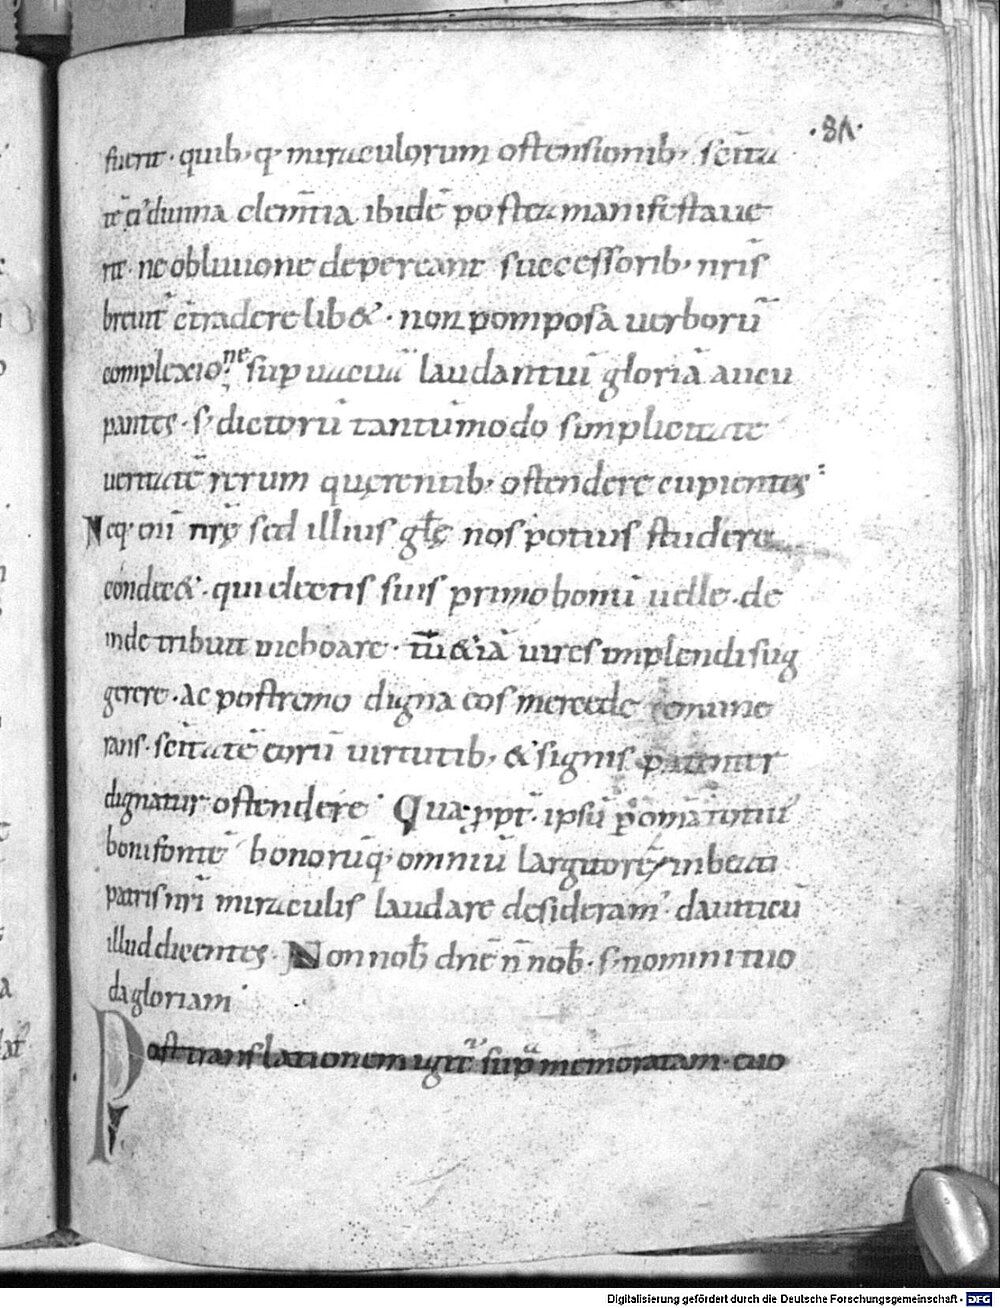 ·81·
fuerit· quib;q· miraculorum ostensionib; scita
tē ei' diuina clem̄tia ibidē postea manifestaue
rit· ne obliuione depereant successorib; nr̄is
breuit' c̄tradere libet· non pomposa uerborū
complexione sup uacuā laudantiū gloriā aucu
pantes· s; dictorū tantūmodo simplicitate
ueritatē rerum querentib; ostendere cupientes·
Neq· eni nrę sed illius glę nos potius studere
condecet· qui electis suis primo bonū uelle· de
inde tribuit inchoare· tū etiā uires implendi sug
gerere· ac postremo digna eos mercede remune
rans· scitatē eorū uirtutib; & signis patenter
dignatur ostendere· Qua ppt· ipsū p̄ om̄ia totiū
boni fontē bonorūq· omniū largitorē in beati
patris nr̄i miraculis laudare desideram' dauiticū
illud dicentes· Non nob dn̄e n̄ nob· s; nomini tuo
da gloriam·
Post translationem igit' sup memoratam· euo
Digitalisierung gefördert durch die Deutsche Forschungsgemeinschaft - DFG